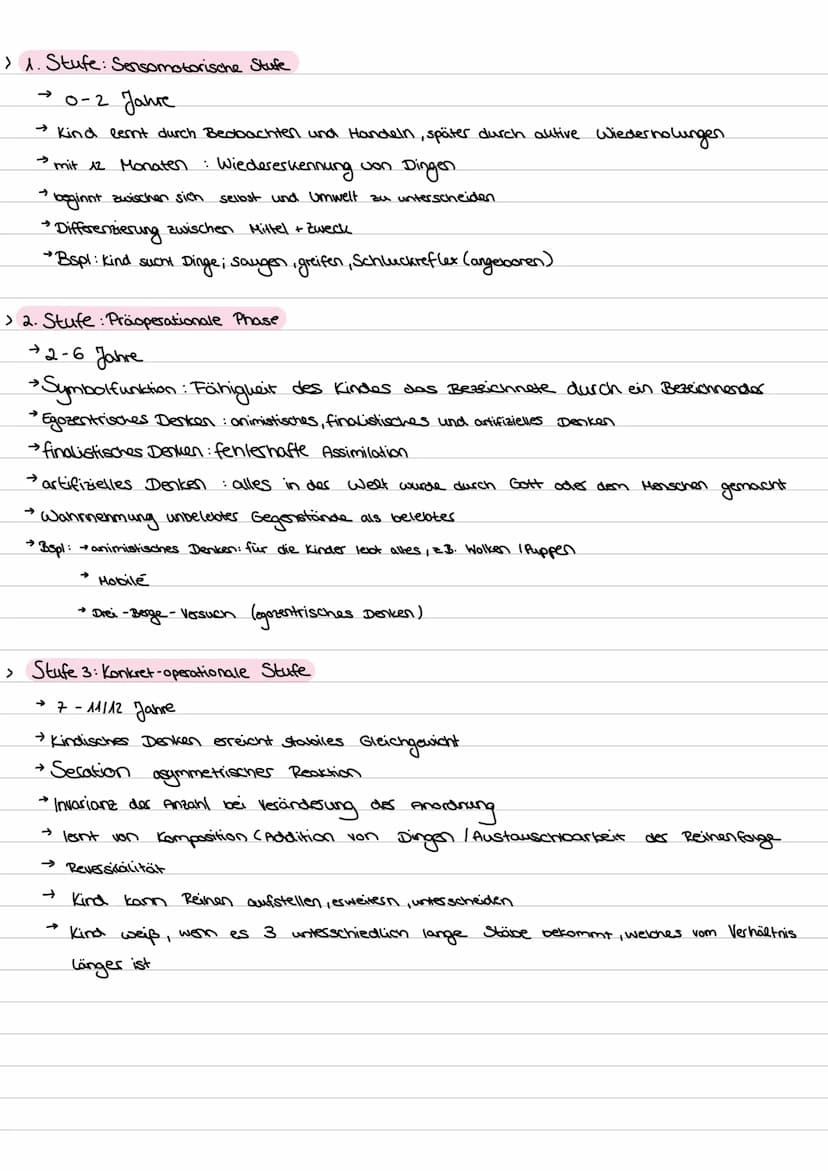 > 1. Stufe: Sensomotorische Stufe
→ 0-2 Jahre
→ Kind lernt durch Beobachten und Handeln, später durch aktive Wiederholungen
→ mit 12 Monaten : Wiedererkennung von Dingen
→ beginnt zwischen sich selbst und Umwelt zu unterscheiden
→ Differenzierung zwischen Mittel + Zweck
→ Bspl: Kind sucht Dinge; saugen, greifen, Schluckreflex (angeboren)
> 2. Stufe: Präoperationale Phase
→ 2-6 Jahre
→ Symbolfunktion: Fähigkeit des Kindes das Bezeichnete durch ein Bezeichnendes
→ Egozentrisches Denken : animistisches, finalistisches und artifizielles Denken
→ finalistisches Denken: fehlerhafte Assimilation
→ artifizielles Denken : alles in der Welt wurde durch Gott oder dem Menschen gemacht
→ Wahrnehmung unbelebter Gegenstände als belebtes
→ Bspl: → animistisches Denken: für die Kinder lebt alles, z.B. Wolken / Puppen
→ Mobilé
→ Drei-Berge-Versuch (egozentrisches Denken)
> Stufe 3: Konkret-operationale Stufe
→ 7 - 11/12 Jahre
→ Kindisches Denken erreicht stabiles Gleichgewicht
→ Seration asymmetrischer Reaktion
→ Invarianz der Anzahl bei Veränderung der Anordnung
→ lernt von Komposition (Addition von Dingen / Austauschbarkeit der Reihenfolge
→ Reversibilität
→ Kind kann Reihen aufstellen, erweitern, unterscheiden
→ Kind weiß, wenn es 3 unterschiedlich lange Stäbe bekommt, welches vom Verhältnis
länger ist